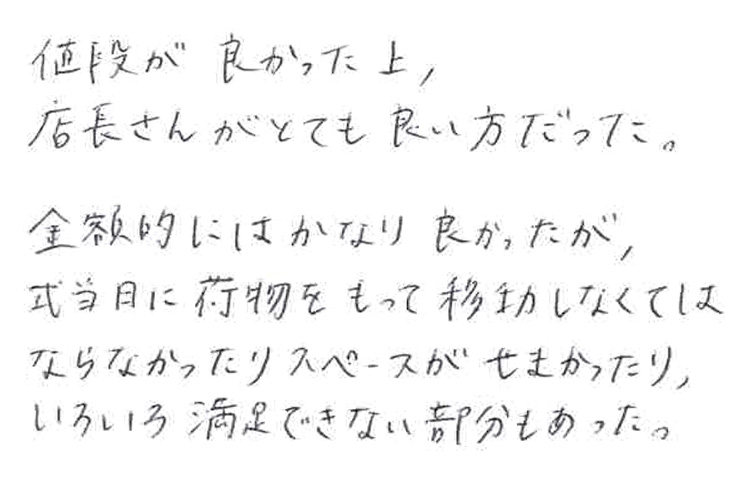 値段が良かった上,
店長さんがとても良い方だった。
金額的にはかなり良かったが,
式当日に荷物をもって移動しなくては
ならなかったりスペースがせまかったり,
いろいろ満足できない部分もあった。